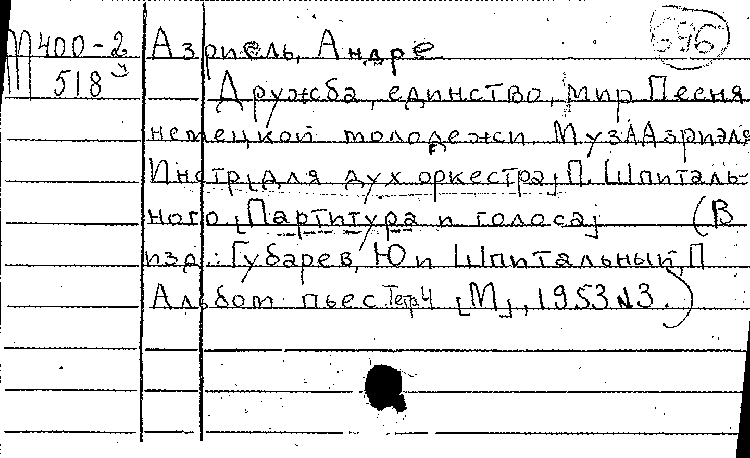 М400-2 Азриель, Андре 596
518 Дружба, единство, мир Песня
немецкой молодежи Муз А Азриэля
Инстр[для дух оркестра] П. Шпиталь-
ного, [Партитура и голоса] (В
изд.: Губарев, Ю и Шпитальный, П
Альбом пьес Тетр 4 [М], 1953 №3.)